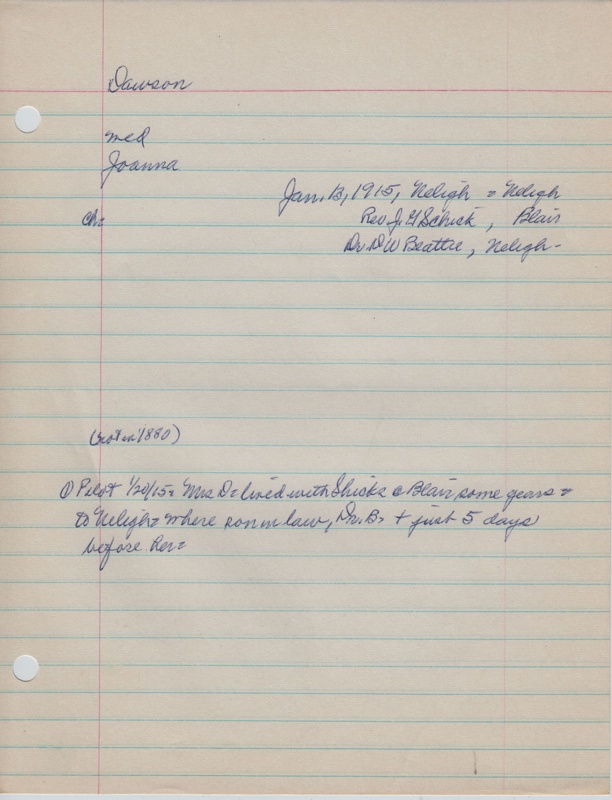 Dawson
med
Joanna
Jan. 13, 1915, Neligh = Neligh
ch= Rev J. G Schick, Blair
Dr. D W Beattie, Neligh-
(not in 1880)
① Pilot 1/20/15= Mrs D= lived with Shicks @ Blair some years =
to Neligh= where son in law, Dr. B. + just 5 days
before. Rev=